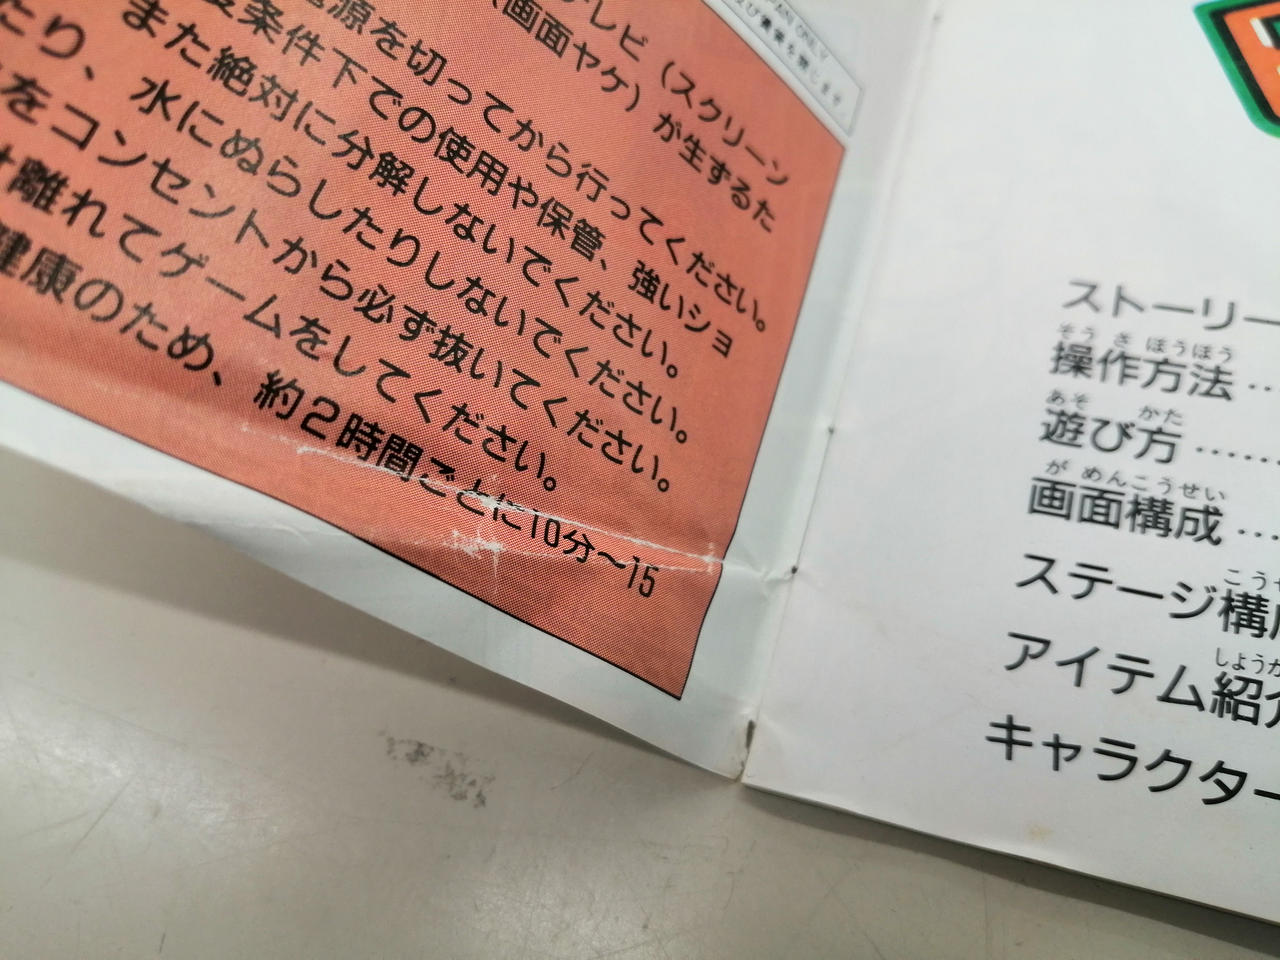 PAN ONLY
及び賃貸を禁じます
テレビ（スクリーン
（画面ヤケ）が生するた
電源を切ってから行ってください。
条件下での使用や保管、強いショ
また絶対に分解しないでください。
たり、水にぬらしたりしないでください。
をコンセントから必ず抜いてください。
離れてゲームをしてください。
健康のため、約2時間ごとに10分～15
ストーリー
そうさほうほう
操作方法‥
あそ かた
遊び方……
がめんこうせい
画面構成…
こうせ
ステージ構成
しょうか
アイテム紹介
キャラクター